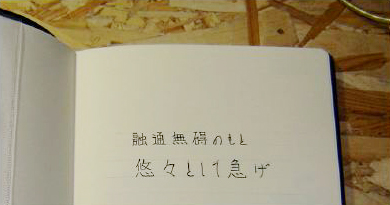 融通無碍のもと
悠々として急げ